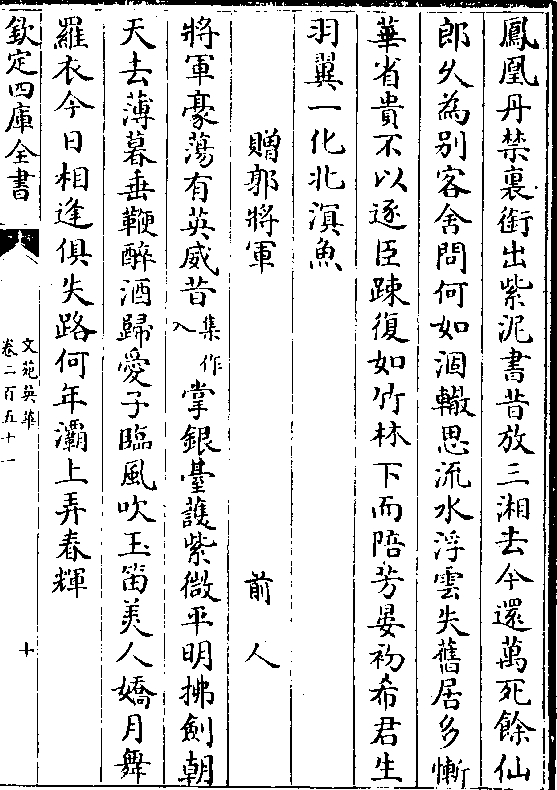 鳳凰丹禁裏銜出紫泥書昔放三湘去今還萬死餘仙
郎久為別客舍問何如涸轍思流水浮雲失舊居多慚
華省貴不以逐臣踈復如竹林下而陪芳晏初希君生
羽翼一化北溟魚
贈郭將軍 前人
將軍豪蕩有英威昔集作入掌銀臺護紫微平明拂劍朝
天去薄暮垂鞭醉酒歸愛子臨風吹玉笛美人嬌月舞
羅衣今日相逢俱失路何年灞上弄春輝
欽定四庫全書 文苑英華卷二百五十一 十